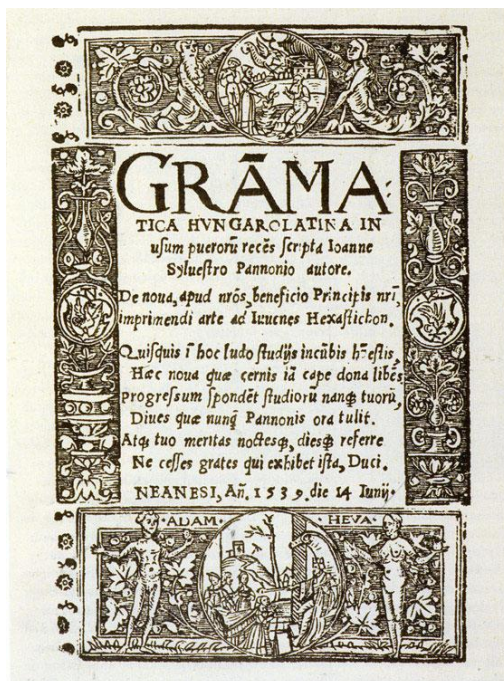 GRÃMA
TICA HVNGAROLATINA IN
uſum puerorũ recẽs ſcripta Ioanne
Sylueſtro Pannonio autore.
De noua, apud nr̃os, beneficio Principis nr̃i,
imprimendi arte ad Iuuenes Hexaſtichon.
Quiſquis ĩ hoc ludo ſtudijs incũbis honeſtis,
Hæc noua quæ cernis iã cape dona libẽs
progreſſum ſpondẽt ſtudiorũ nanq; tuorũ,
Diues quæ nunq̃ Pannonis ora tulit.
Atq; tuo meritas noctesq;, diesq; referre
Ne ceſſes grates qui exhibet iſta, Duci.
NEANESI, Añ. 1539. die 14 Iunij.
·ADAM· HEVA·